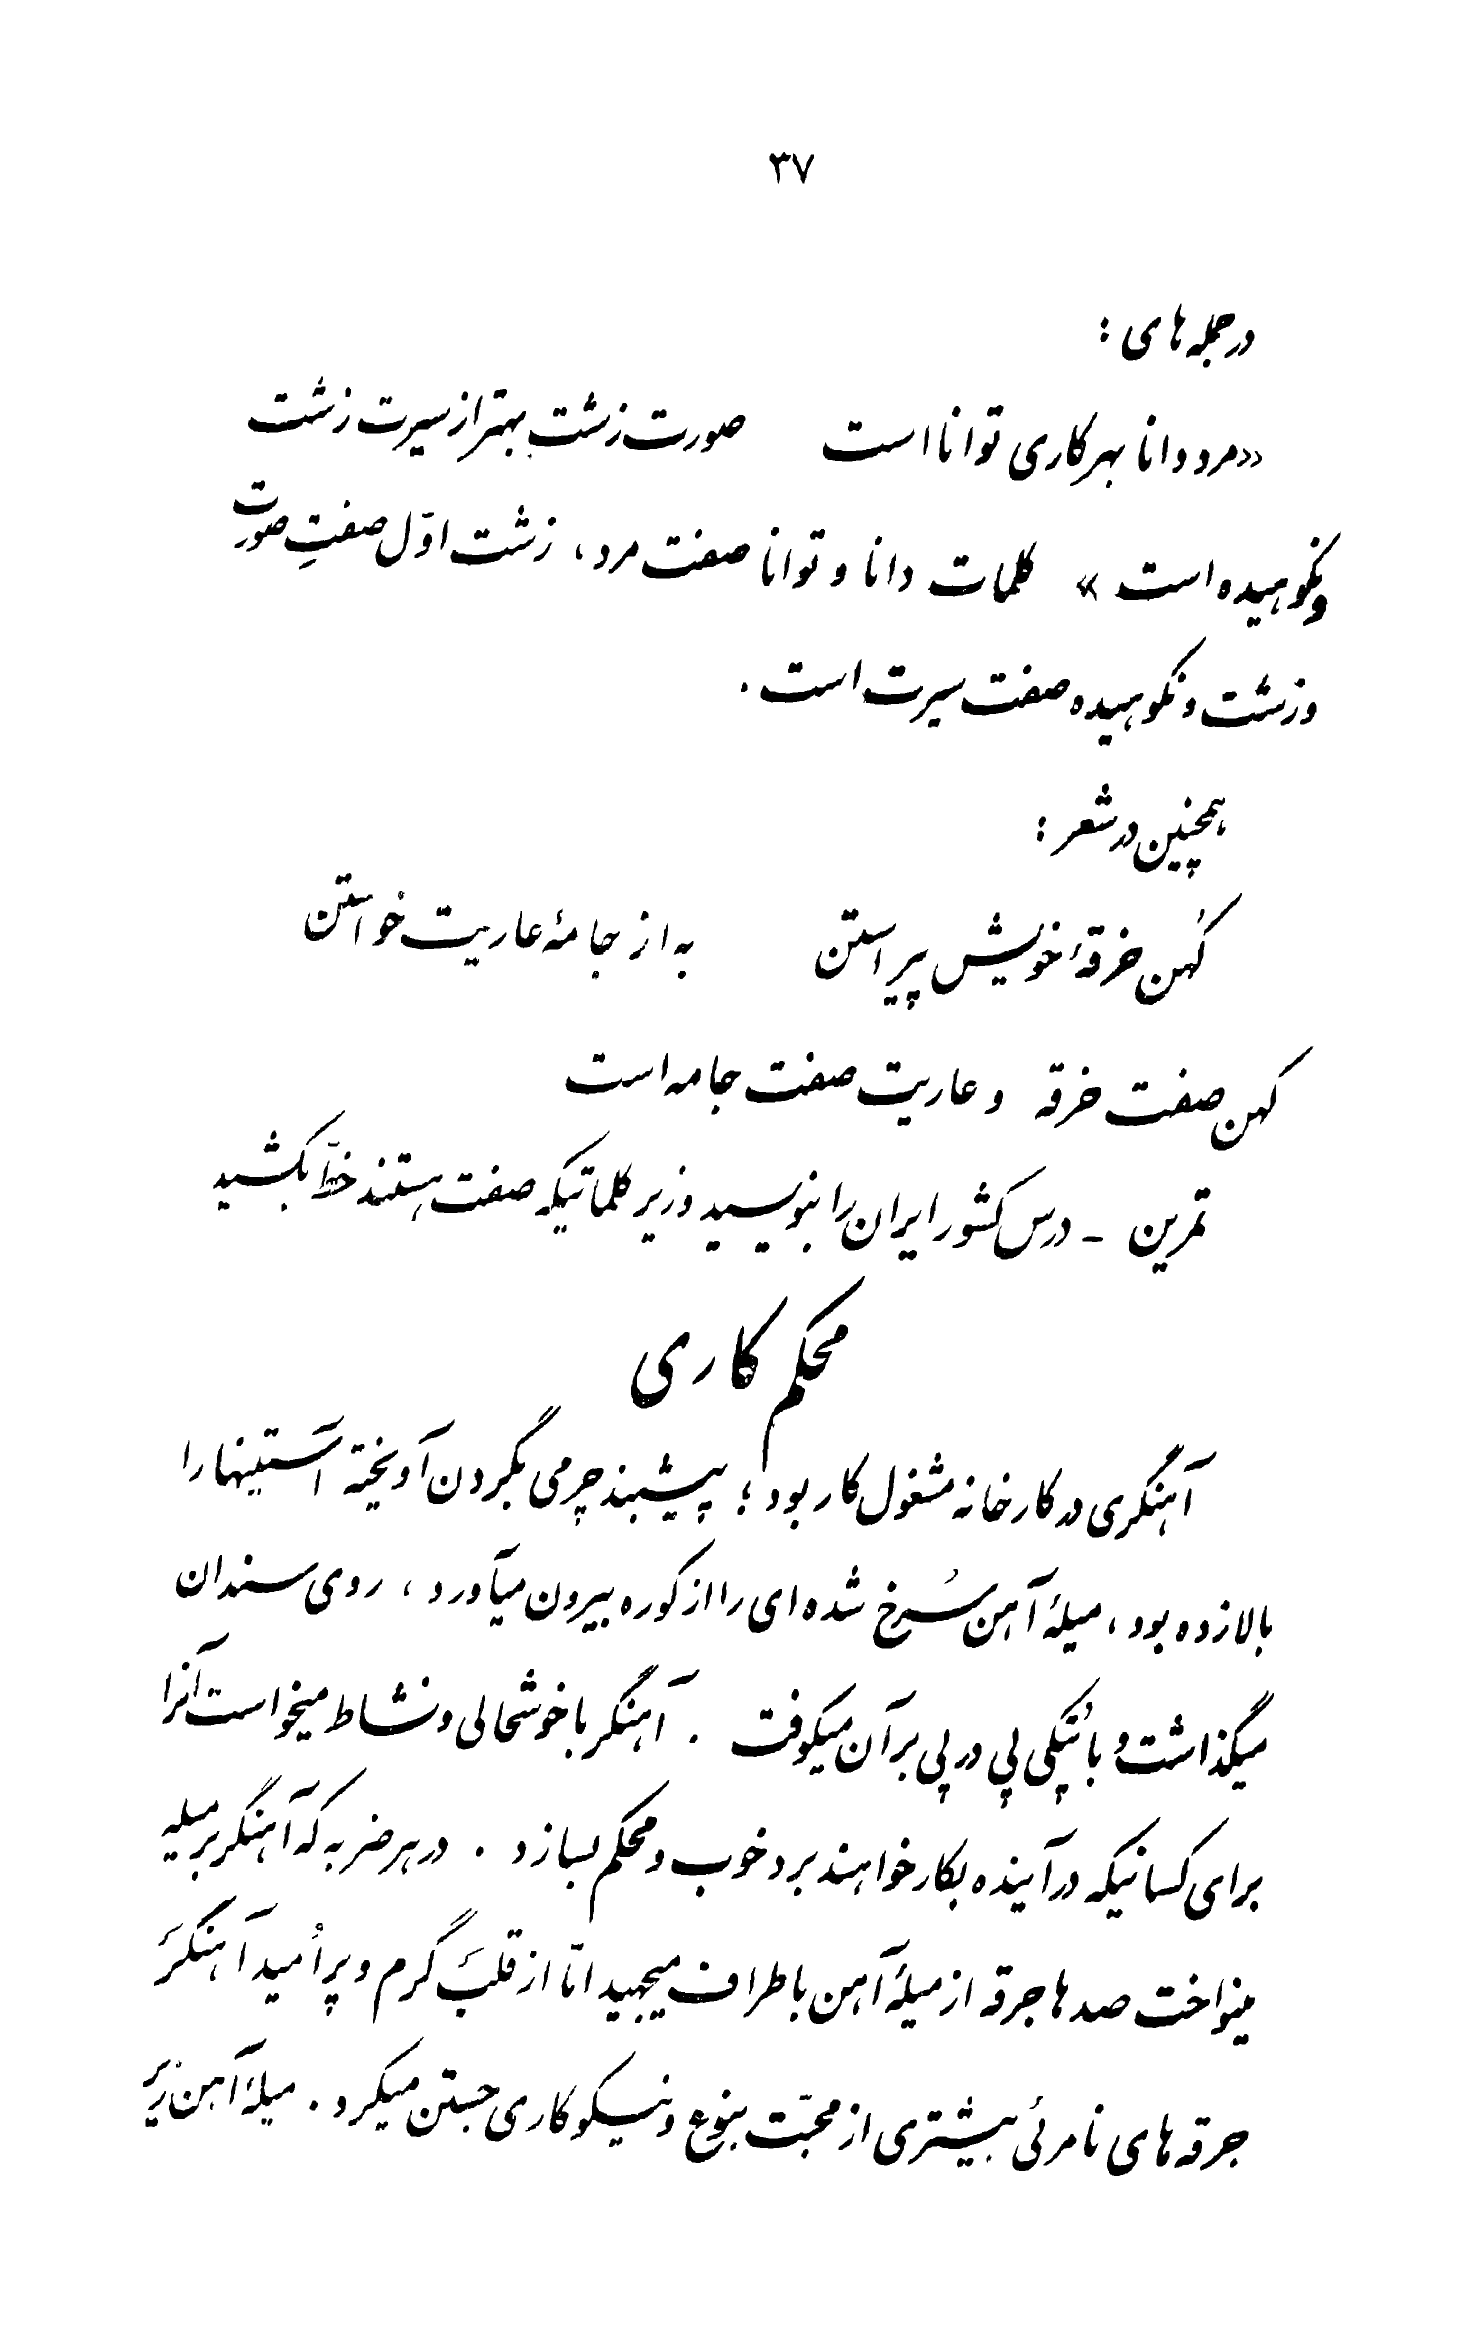 ۳۷
در جمله های :
«مرد دانا بهر کاری توانا است صورت زشت بهتر از سیرت زشت
و نکوهیده است» کلمات دانا و توانا صفت مرد، زشت اوّل صفتِ صورت
و زشت و نکوهیده صفت سیرت است .
همچنین در شعر :
کُهن خرقهٔ خویش پیراستن به از جامهٔ عاریت خواستن
کهن صفت خرقه و عاریت صفت جامه است
تمرین - درس کشور ایران را بنویسید و زیر کلماتیکه صفت هستند خطّ بکشید
محکم کاری
آهنگری در کارخانه مشغول کار بود؛ پیشبند چرمی بگردن آویخته آستینها را
بالا زده بود، میلهٔ آهن سُرخ شده ای را از کوره بیرون میآورد، روی سندان
میگذاشت و با پُتکی پی در پی بر آن میکوفت . آهنگر با خوشحالی و نشاط میخواست آنرا
برای کسانیکه در آینده بکار خواهند برد خوب و محکم بسازد . در هر ضربه که آهنگر بر میله
مینواخت صدها جرقه از میلهٔ آهن باطراف میجهید امّا از قلبَ گرم و پر اُمید آهنگرَ
جرقه های نامرئی بیشتری از محبّت بنوع و نیکوکاری جستن میکرد . میلهٔ آهن زیر